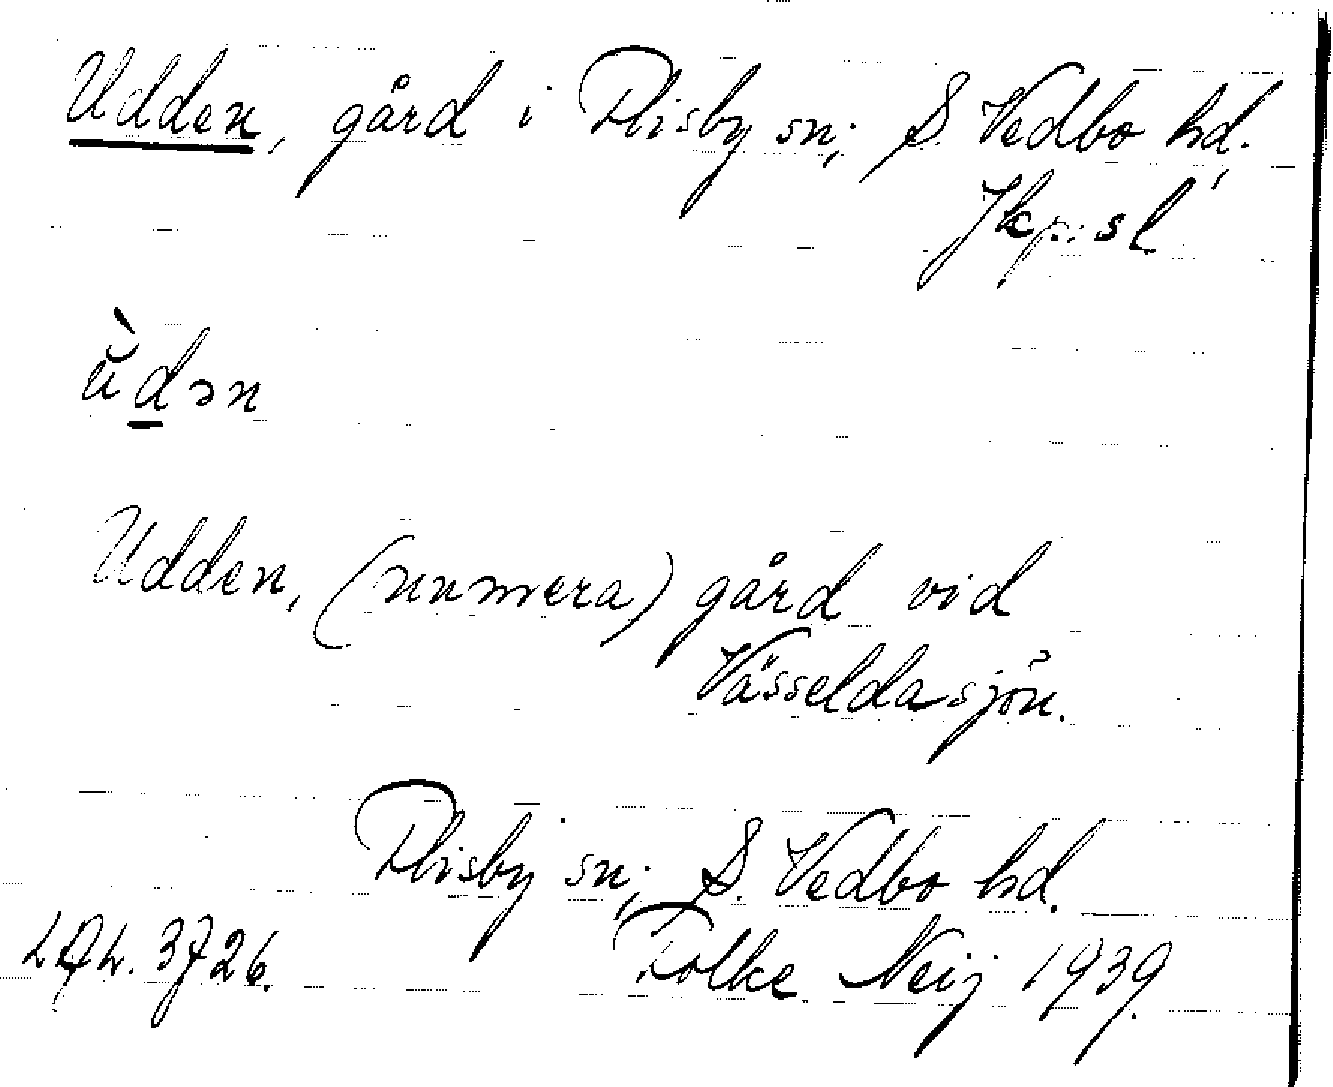 Udden, gård i Flisby sn; S. Vedbo hd.
Jkp:s l.
ù̆dən
Udden, (numera) gård vid
Vässeldasjön.
Flisby sn; S. Vedbo hd.
Folke Neij 1939.
3726.